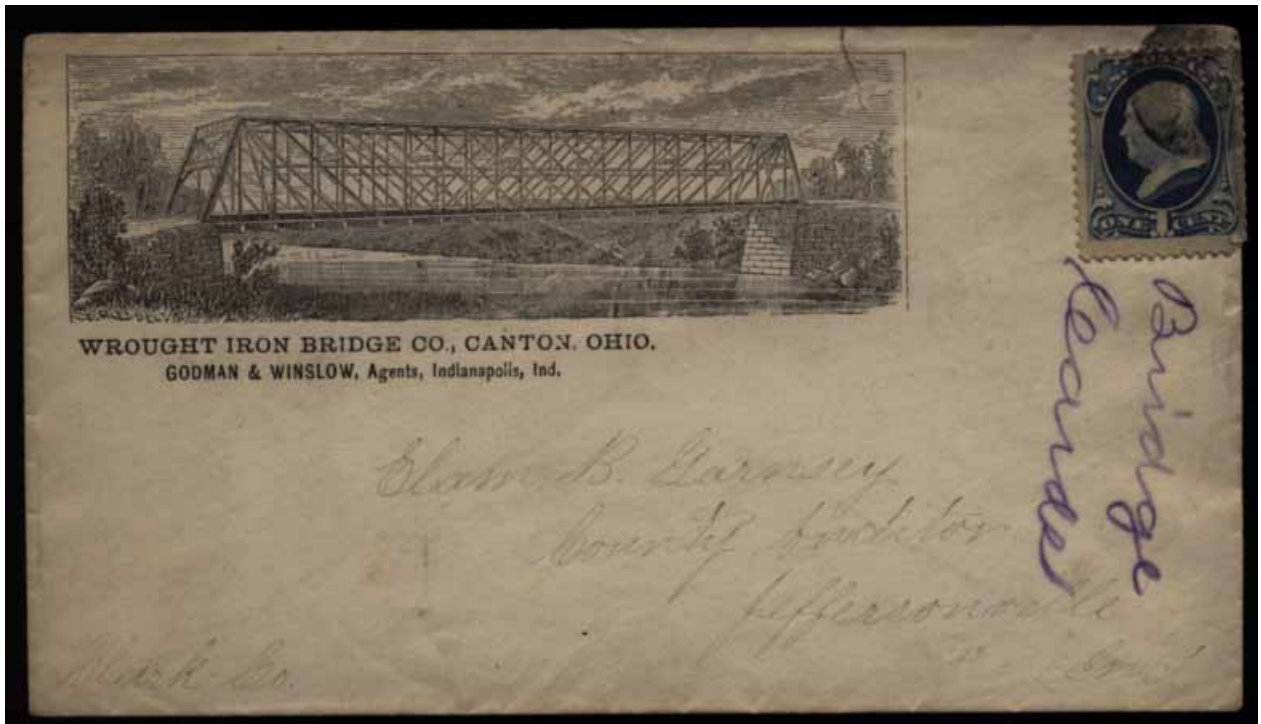 WROUGHT IRON BRIDGE CO., CANTON, OHIO.
GODMAN & WINSLOW, Agents, Indianapolis, Ind.
ONE 1 CENT
Bridge
Elam B. Garnsey
County Auditor
Jeffersonville
Clark Co.
Ind.